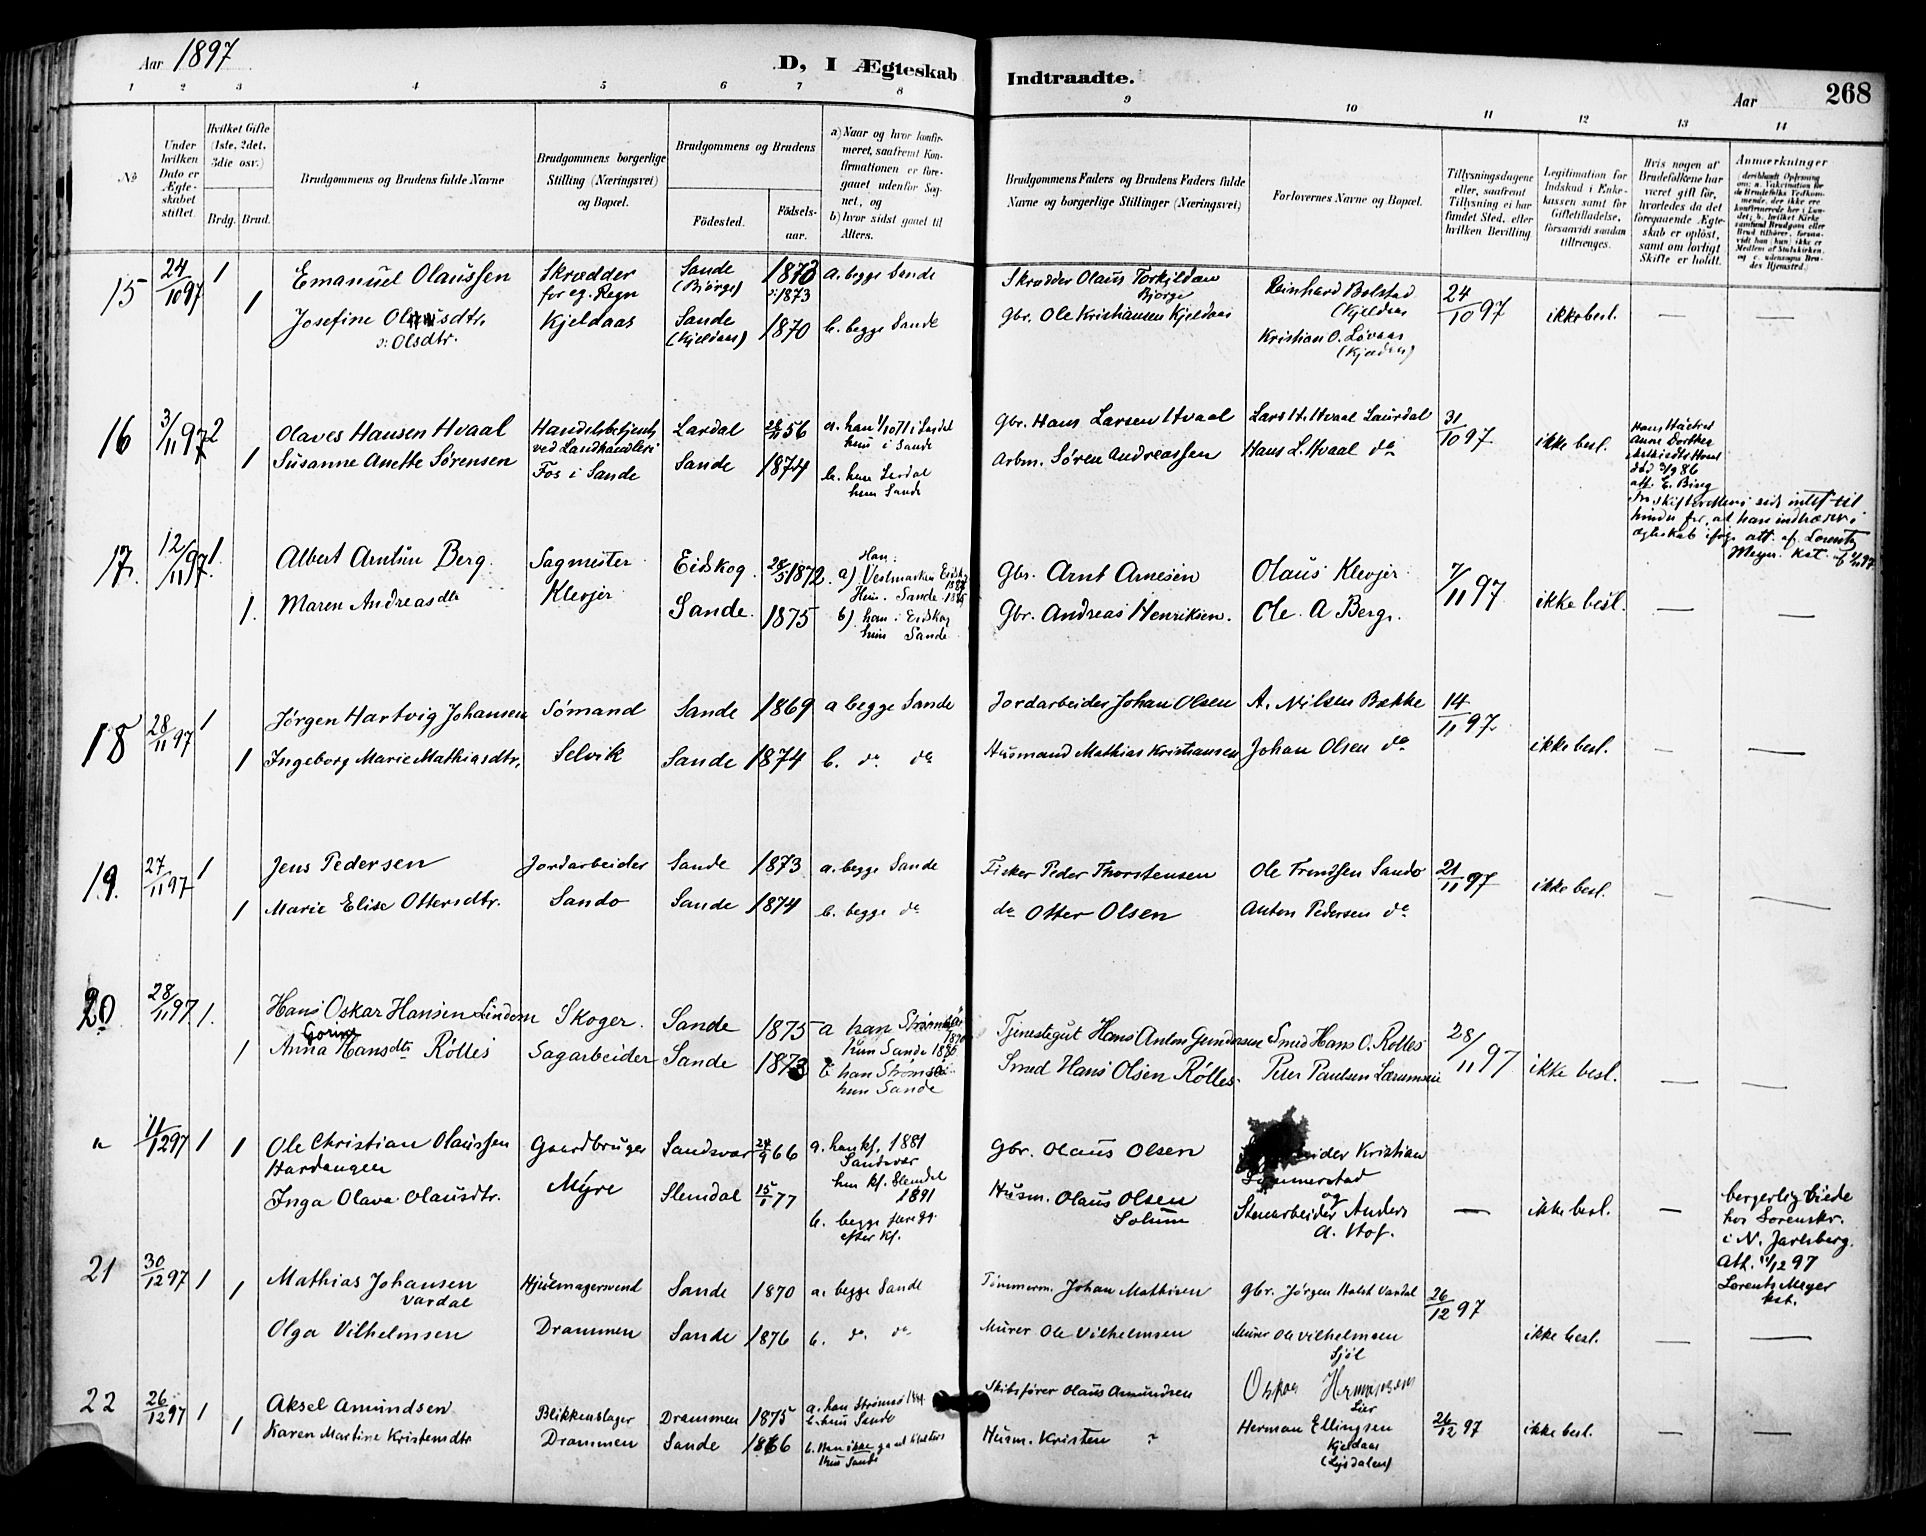 Aar 1897
D, I Ægteskab Indtraadte.
Aar 268
1 2 3 4 5 6 7 8 9 10 11 12 13 14
No
Under hvilken Dato er Ægteskabet stiftet.
Hvilket Gifte (1ste, 2det, 3die osv.)
Brdg. Brud.
Brudgommens og Brudens fulde Navne
Brudgommens borgerlige Stilling (Næringsvei) og Bopæl.
Brudgommens og Brudens
Födested.
Födsels-aar.
a) Naar og hvor konfirmeret, saafremt Konfirmationen er foregaaet udenfor Sognet, og
b) hvor sidst gaaet til Alters.
Brudgommens Faders og Brudens Faders fulde Navne og borgerlige Stillinger (Næringsvei)
Forlovernes Navne og Bopæl.
Tillysningsdagene eller, saafremt Tillysning ei har fundet Sted, efter hvilken Bevilling
Legitimation for Indskud i Enkekassen samt for Giftetilladelse, forsaavidt saadan tiltrænges.
Hvis nogen af Brudefolkene har været gift för, hvorledes da det foregaaende Ægteskab er oplöst, samt om lovligt Skifte er holdt.
Anmærkninger
15 24/10 97 1 Emanuel Olaussen Skrædder Sande (Bjørge) 1873 a. begge Sande Skrædder Olaus Torkildsen Bjorge Reinhard Bolstad (Kjeldaas 24/10 97 ikke besl. — —
for eg. Regn o: 1873
1 Josefine Olausdtr. Kjeldaas Sande (Kjeldaas) 1870 b. begge Sande Gbr. Ole Kristiansen Kjeldaas Kristian O. Løvaas
o: Olsdtr.
16 3/11 97 2 Olaves Hansen Hvaal Handelsbetjent Lardal 28/11 56 Gbr. Hans Larsen Hvaal Lars H. Hvaal Laurdal 31/10 97 ikke besl.
ved Landhandleri hun i Sande
1 Susanne Anette Sørensen Fos i Sande Sande 1874 b. han Lardal Arbm. Søren Andreassen Hans L. Hvaal do
hun Sande
Anne Dorthea
att. E. Bing
ægteskab ifølge att. af Lorentz
Meyer. kst.
17. 12/11 97. 1. Albert Amtin Berg. Sagmester Eidskog 28/5 1872. Han: a) Vestmarken Gbr. Arnt Arnesen Olaus Klevjer 7/11 97 ikke besl. — —
Hun. Sande
1. Maren Andreasdtr Klevjer Sande. 1875 b) han i Eidskog Gbr. Andreas Henriksen. Ole A Berg.
hun Sande
18 28/11 97 1 Jørgen Hartvig Johansen Sømand Sande 1869 a begge Sande Jordarbeider Johan Olsen A. Nilsen Bække 14/11 97. ikke besl. — —
1 Ingeborg Marie Mathiasdtr, Selvik Sande 1874 b. do do Husmand Mathias Kristiansen Johan Olsen do
19. 27/11 97 1 Jens Pedersen Jordarbeider Sande 1873 a. begge Sande Fisker Peder Thorstensen Ole Frendsen Sando 21/11 97 ikke besl. — —
1 Marie Elise Ottersdtr. Sando Sande 1874 b. begge do do Otter Olsen Anton Pedersen do
20 28/11 97. 1. Hans Oskar Hansen Lindem Skoger. Sande 1875 a han Strømsø Tjenestegut Hans Anton Gundersen Smed Hans O. Rolles 28/11 97 ikke besl. — —
hun Sande
1 Anna Hansdtr Rölles Sagarbeider Sande 1873 b han Strømsø Smed Hans Olsen Rölles. Peter Paulsen
hun Sande
" 11/12 97 1 1 Ole Christian Olaussen Gaardbruger Sandsvær 24/9 66 a. han kf. 1881 Gbr. Olaus Olsen Kristian
Hardangen Sandsvær
hun kf. Slemdal 1891
Inga Olava Olausdtr. Myre Slemdal 15/1 77 Husm. Olaus Olsen Solum og Stenarbeider Anders A. Hof. — ikke besl. —
b. begge foregg. efter kf.
borgerlig viede
hos Sorenskr.
i N. Jarlsberg.
Att. 11/12 97
Lorentz Meyer
kst.
21 30/12 97 1 1 Mathias Johansen Vardal Hjulmagersvend Sande 1870 a. begge Sande Tömmerm. Johan Mathisen Gbr. Jørgen Holst Vardal 26/12 97
Olga Vilhelmsen Drammen Sande 1876 b. do do Murer Ole Vilhelmsen Murer Ole Vilhelmsen Sjöl ikke besl. — —
22 26/12 97 1 Aksel Amundsen Blikkenslager Drammen 1875 a. han Strømsø Skibsfører Olaus Amundsen Oskar Hermansen Lier
hun Sande
1 Karen Martine Kristensdtr Drammen Sande 1876 b. Han ikke Husm. Kristen ? Herman Ellingsen 26/12 97 ikke besl. — —
Hun Sande Kjeldaas